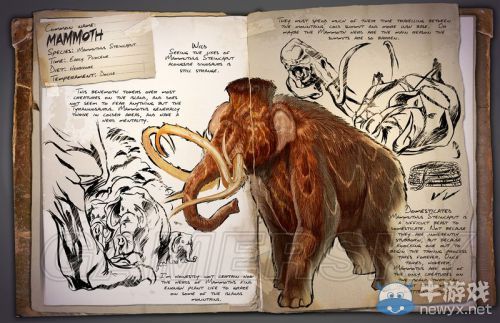 Common Name:
MAMMOTH
Species: Mammuthus Steincaput
Time: Early Pliocene
Diet: Herbivore
Temperament: Docile
Wild
Seeing the likes of
Mammuthus Steincaput
alongside dinosaurs is
still strange.
This behemoth towers over most
creatures on the island, and does
not seem to fear anything but the
Tyrannosaurus. Mammoths generally
travel in colder areas, and have a
herd mentality.
I'm honestly not certain how
the herds of Mammoths find
enough plant life to graze
on some of the islands
mountains.
They must spend much of their time travelling between
the mountains, cold summit and more lush base. Or
maybe the Mammoth herd are the main reason the
summits are so barren.
Domesticated
Mammuthus Steincaput is
a difficult beast to
domesticate. Not because
they are inherently
stubborn, but because
knocking one out to
begin the taming process
takes forever. Once
tamed, however,
Mammoths are one of
the only creatures on
牛游戏
newyx.net